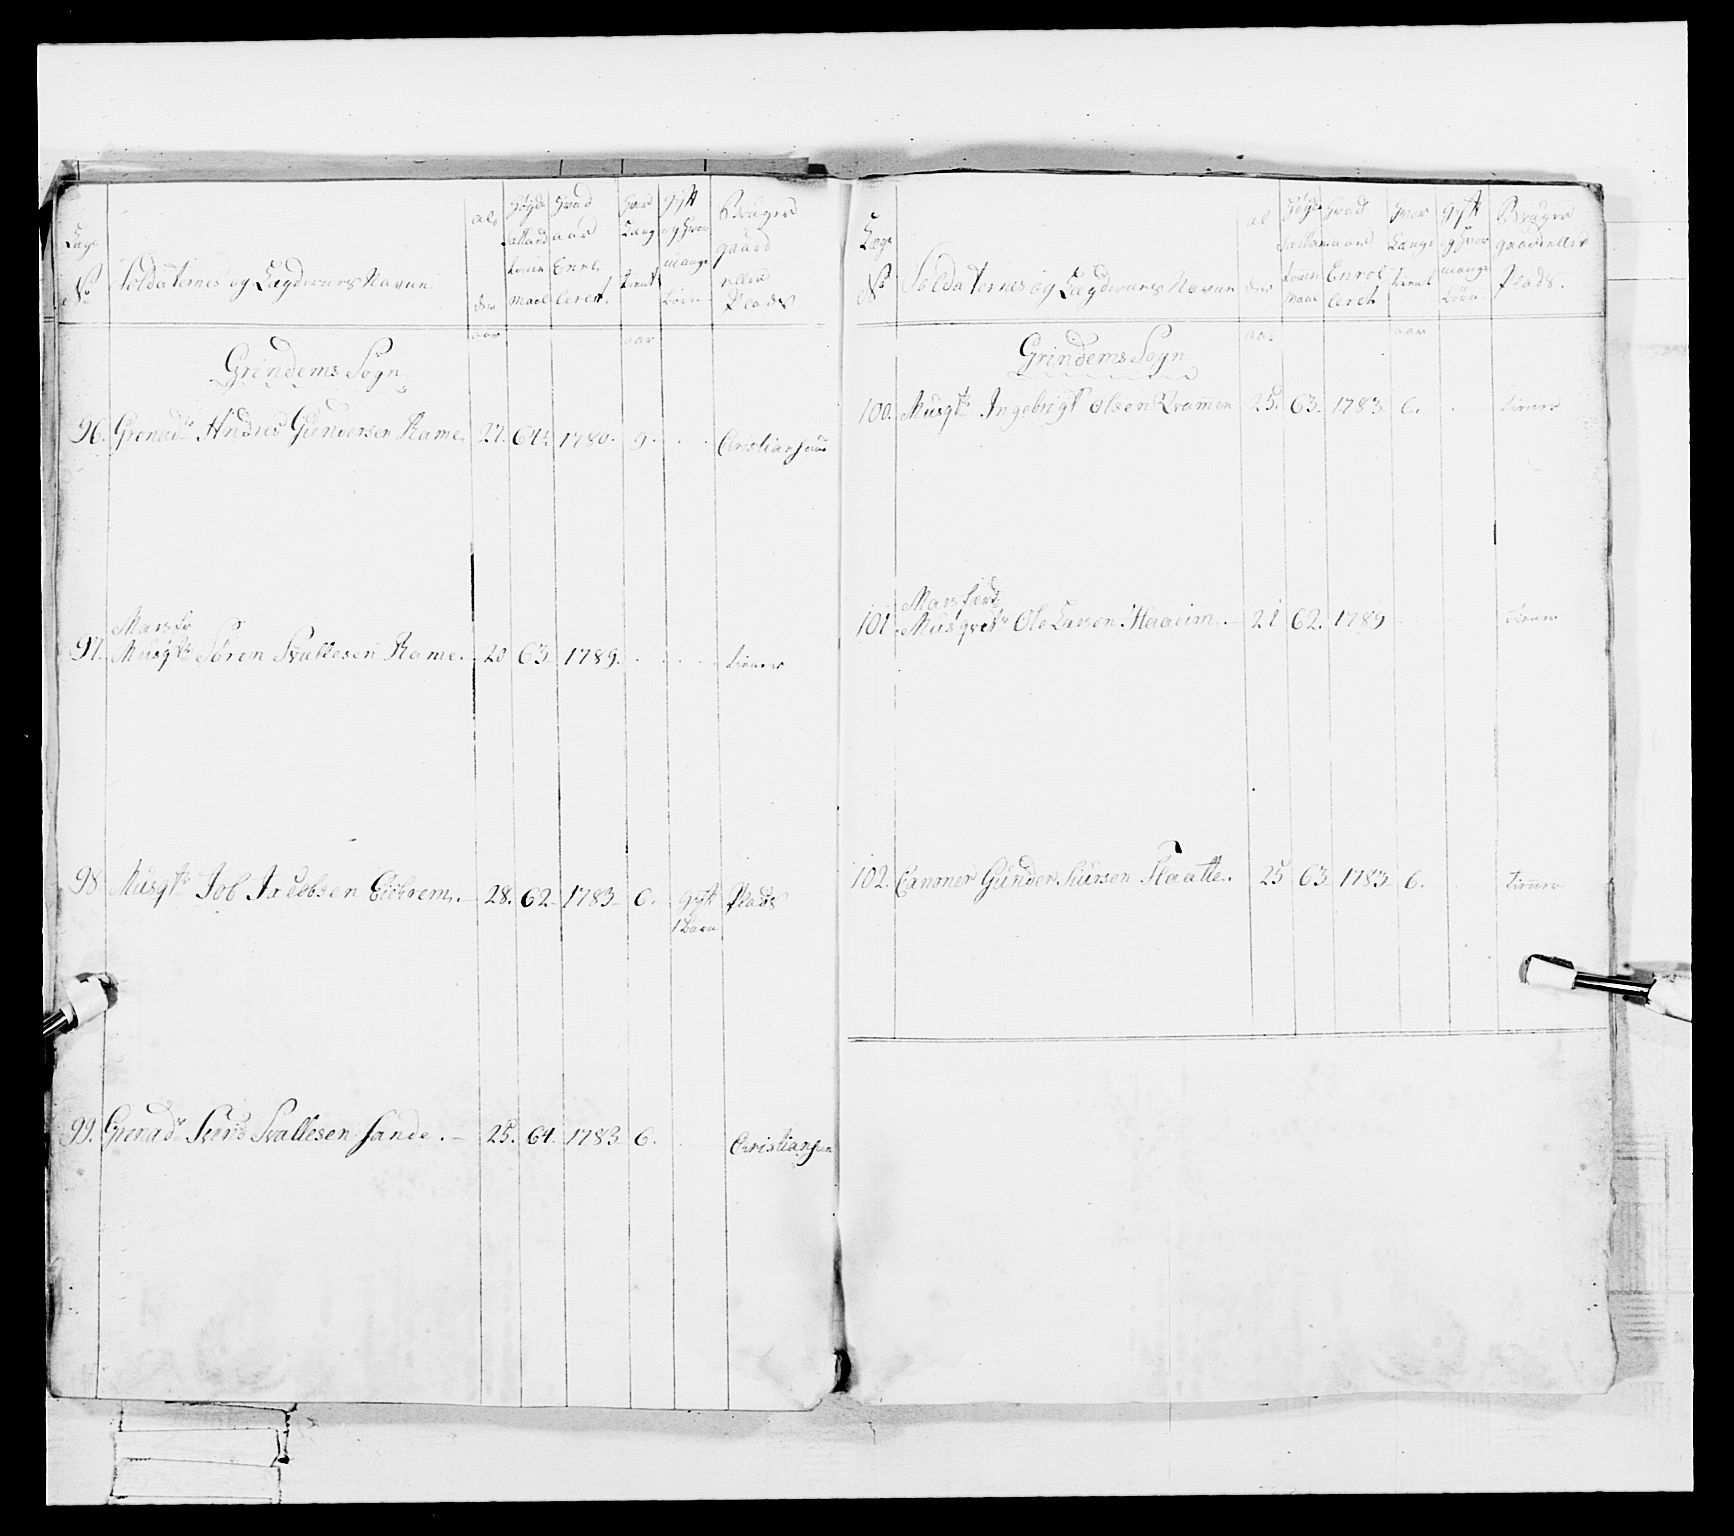 Læg No
Soldaternes og Lægdernes Navne
al der aar
Høyde Sattand tomme maal
Hvad aar Enrolleret
Hvor Længe tient aar
Gift og Hvor mange Børn
Bruger gaard eller Plads
Grindems Sogn
96. Grenad Andres Gundersen Rame 27. 64½ 1780. 9. Christianh
Mars
97. Musqtr Sören Svallesen Rame. 20 63 1789. tiener
98. Musqtr Job Jacobsen Eichrem. 28. 62 1783 6. gift Plads
1 Barn
99. Grenadr Svend Svallesen Sande. 25. 64. 1783 6. Christiansen
Læg No
Soldaternes og Lægdernes Navne
al der aar
Høyde tomme Maal
Hvad aar Enrolleret
Hvor Længe tient aar
Gift og Hvor mange Børn
Bruger gaard eller Plads.
Grindems Sogn
100. Musqtr Ingebrigt Olsen Qvamen 25. 63. 1783. 6. tiener
101 Musqvetr Ole Larsen Haaeim. 21 62. 1789 tiener
102. Canoner Gunder Siursen Flaatte. 25 63 1783 6. tiener